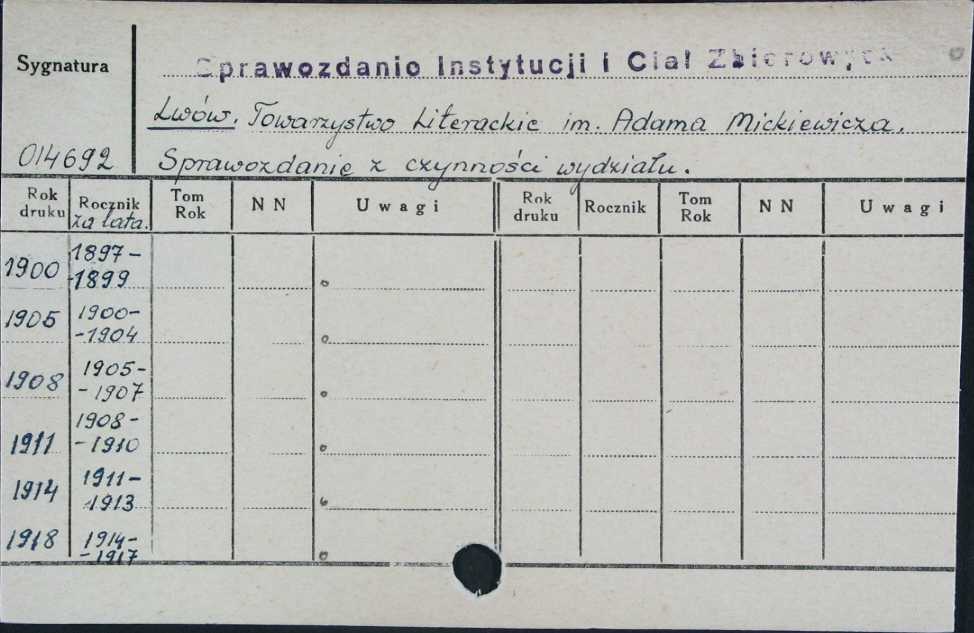 Sygnatura
Sprawozdanie Instytucji i Ciał Zbiorowych
Lwów. Towarzystwo Literackie im. Adama Mickiewicza.
014692 Sprawozdanie z czynności wydziału.
Rok druku Rocznik za lata. Tom Rok NN Uwagi Rok druku Rocznik Tom Rok NN Uwagi
1900 1897-
-1899
1905 1900-
-1904
1908 1905-
-1907
1911 1908-
-1910
1914 1911-
-1913
1918 1914-
-1917